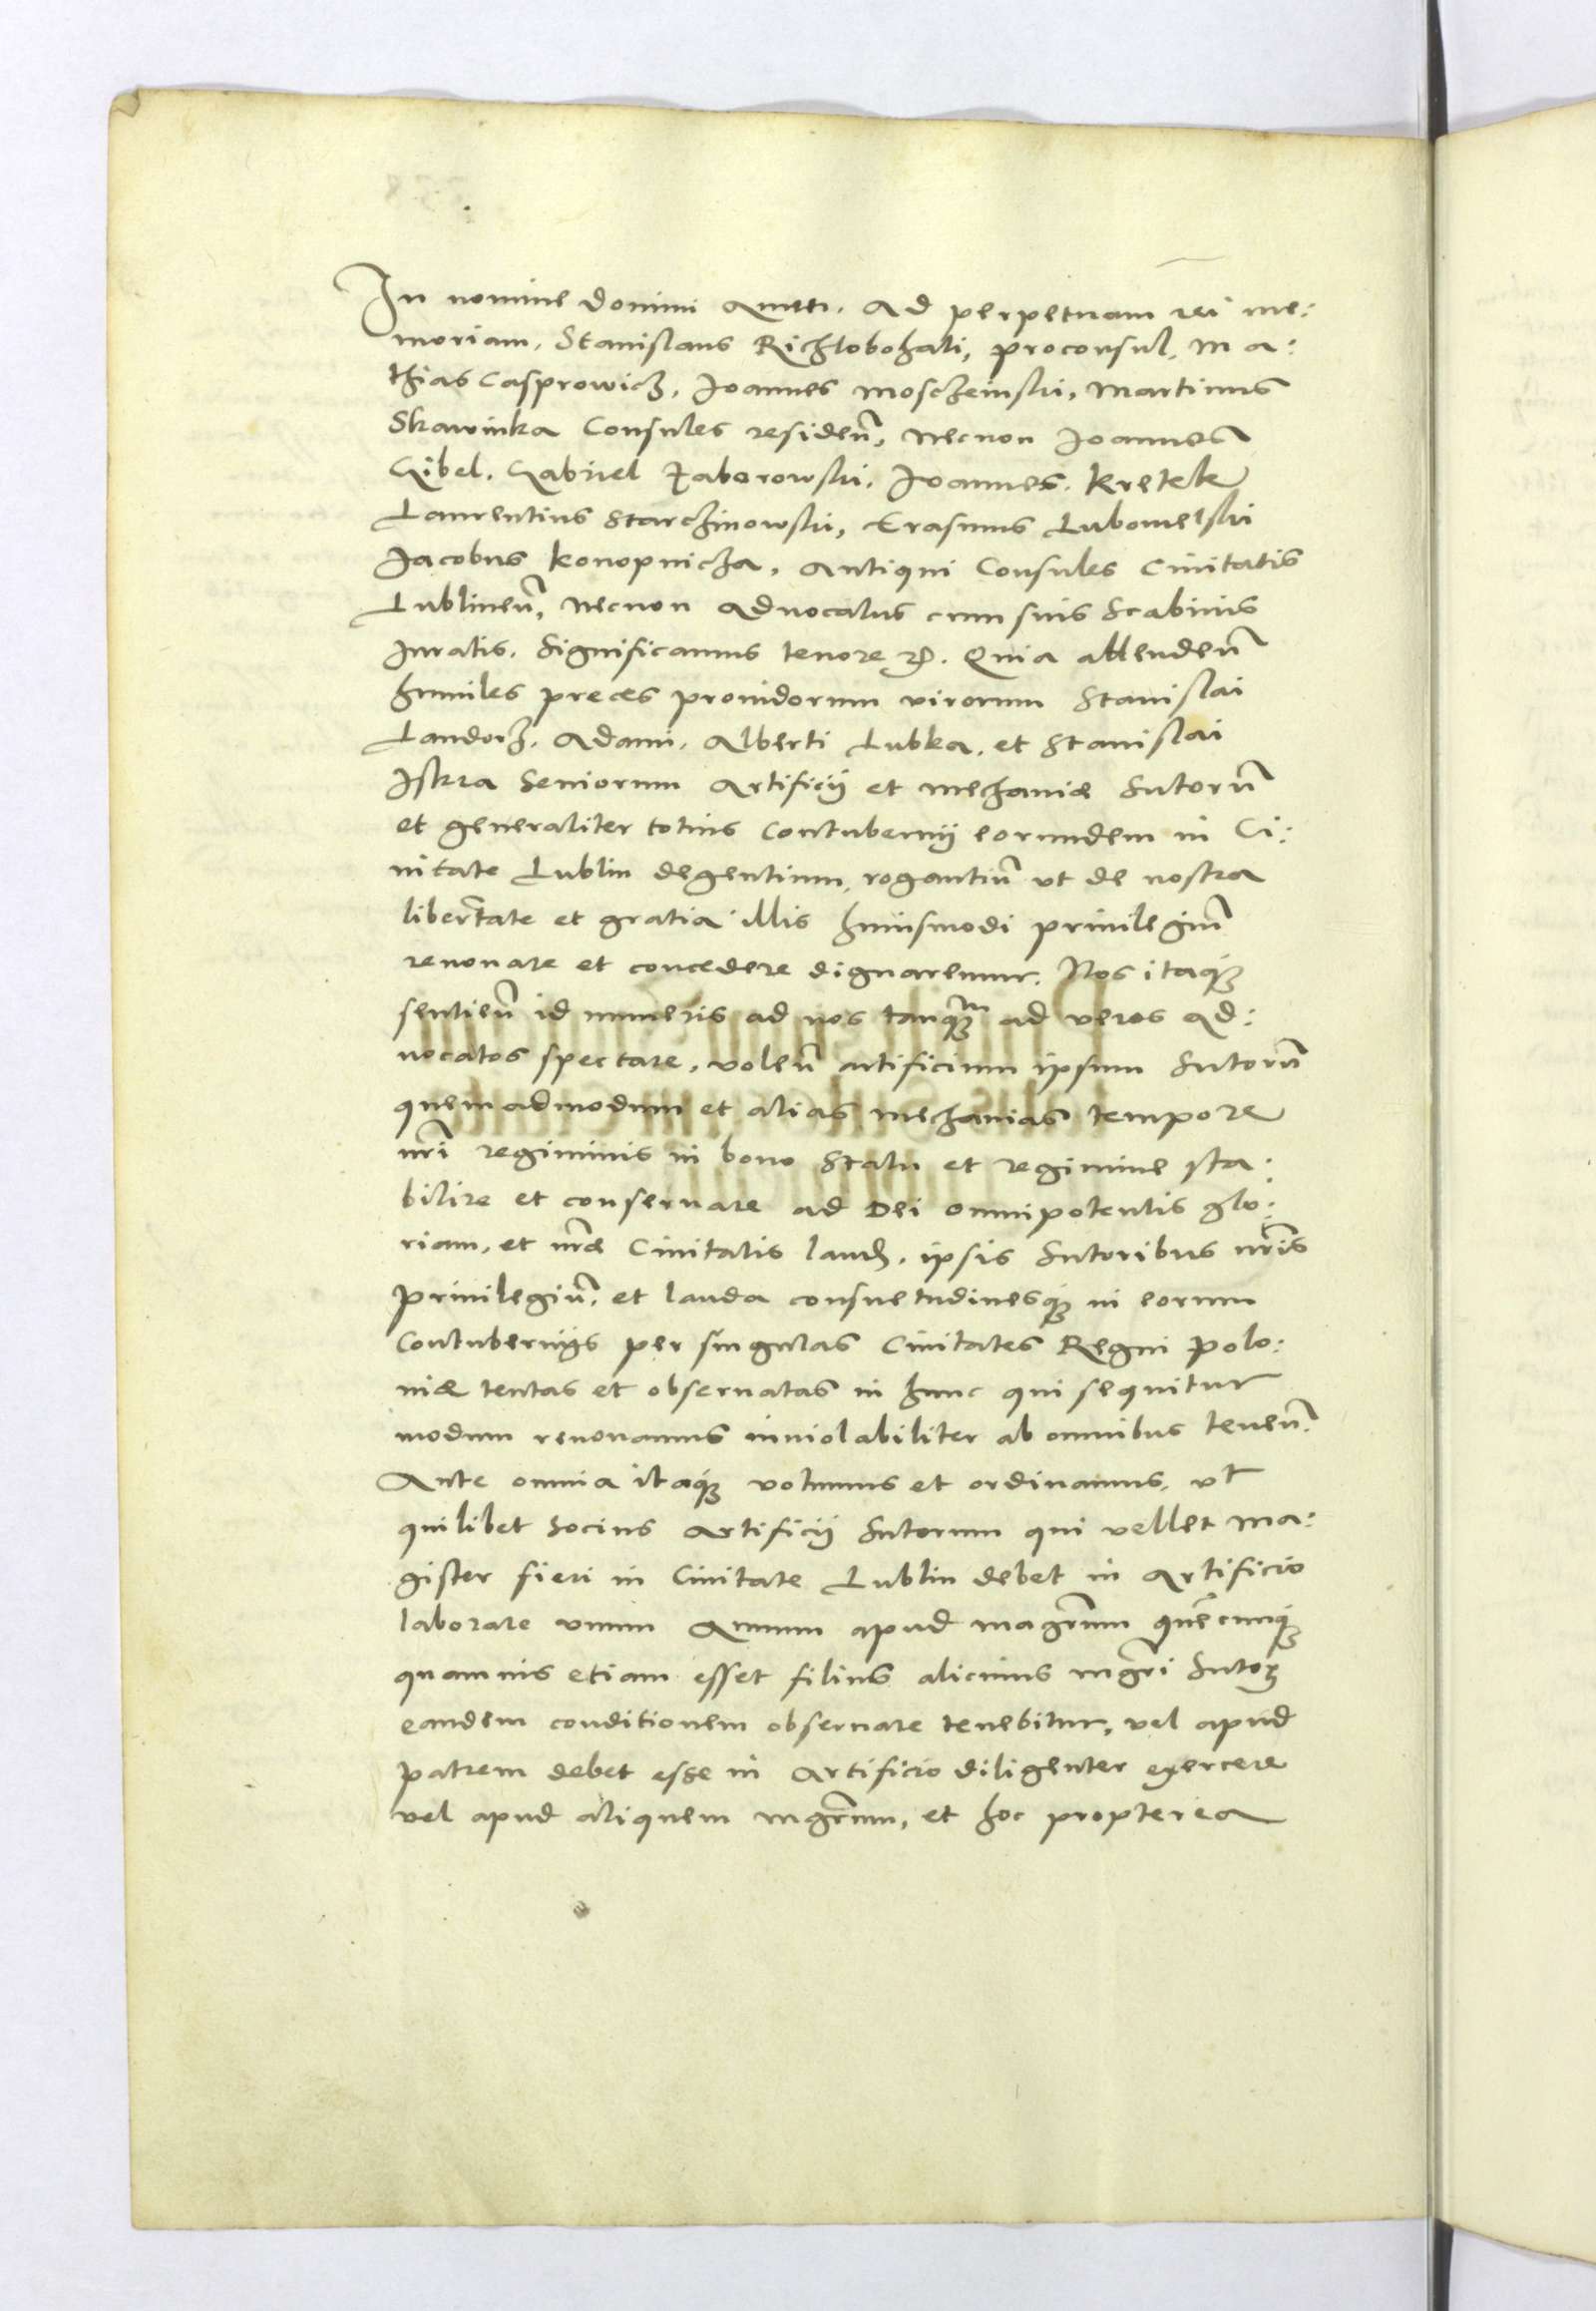 In nomine Domini Amen. Ad perpetuam rei me:
moriam. Stanislaus Richlobohati, proconsul, Ma:
thias Casprowicz, Joannes Moschenski, Martinus
Skawinka Consules residen̄, necnon Joannes
Gibel, Gabriel Zaborowski, Joannes Kretek
Laurentius Starchinowski, Erasmus Lubomelski
Jacobus Konopnicza, Antiqui Consules Ciuitatis
Lublinen̄, Necnon Aduocatus cum suis Scabinis
Juratis. Significamus tenore ꝛc. Quia attenden̄
humiles preces prouidorum virorum Stanislai
Landorz, Adami, Alberti Lubka, et Stanislai
Iskra Seniorum Artificij et mechaniæ Sutorū
et generaliter totius Contubernij eorundem in Ci:
uitate Lublin degentium, rogantiū vt de nostra
libertate et gratia illis huiusmodi priuilegiū
renouare et concedere dignaremur. Nos itaq₃
sentien̄ id muneris ad nos tanq₃m ad veros ad:
uocatos spectare, volen̄ artificium ipsum Sutorū
quemadmodum et alias mechanias tempore
nr̄i regiminis in bono statu et regimine sta:
bilire et conseruare ad Dei omnipotentis glo:
riam, et nr̄æ Ciuitatis laudē, ipsis Sutoribus nr̄is
priuilegiū, et lauda consuetudinesq₃ in eorum
Contubernijs per singulas Ciuitates Regni Polo:
niæ tentas et obseruatas in hunc qui sequitur
modum renouamus inuiolabiliter ab omnibus tenen̄.
Ante omnia itaq₃ volumus et ordinamus, vt
quilibet socius Artificij Sutorum qui vellet ma:
gister fieri in Ciuitate Lublin debet in Artificio
laborare vnum Annum apud magr̄um quēcunq₃
quamuis etiam esset filius alicuius mgr̄i Sutorꝝ
eandem conditionem obseruare tenebitur, vel apud
patrem debet esse in Artificio diligenter exercere
vel apud aliquem mgr̄um, et hoc propterea